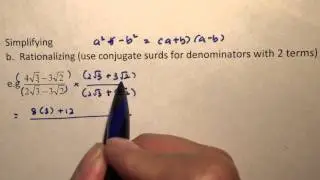 Simplifying a² - b² = (a+b)(a-b)
b. Rationalizing (use conjugate surds for denominators with 2 terms)
e.g (4√3 - 3√2) / (2√3 - 3√2) × (2√3 + 3√2) / (2√3 +
= 8(3) + 12